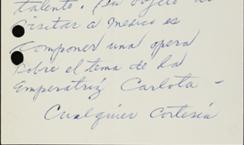 talento. Su objeto al
visitar a Mexico es
componer una opera
sobre el tema de la
Emperatriz Carlota -
Cualquier Cortesía